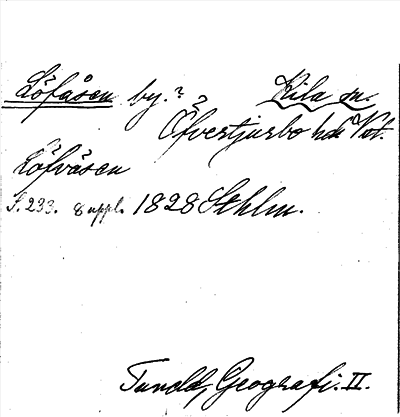 Löfåsen by.? Kila sn.
? Öfvertjurbo hd Vstm.
Löfvåsen
S. 233. 8 uppl. 1828 Sthlm.
Tuneld, Geografi. II.